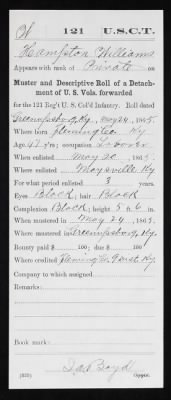 W | 121 | U.S.C.T.
Hampton Williams
Appears with rank of Private on
Muster and Descriptive Roll of a Detachment of U. S. Vols. forwarded
for the 121 Reg't U. S. Col'd Infantry. Roll dated
Greenupsburg, Ky, May 24, 1865.
Where born Fleming Co., Ky
Age 47 y'rs; occupation Laborer
When enlisted May 20, 1865.
Where enlisted Maysville Ky
For what period enlisted 3 years.
Eyes Black; hair Black
Complexion Black; height 5 ft. 6 in.
When mustered in May 24, 1865.
Where mustered in Greenupsburg, Ky.
Bounty paid $ 100; due $ 100
Where credited Fleming Co. Ky
Company to which assigned
Remarks:
Book mark:
Boyd
(339) Copyist.